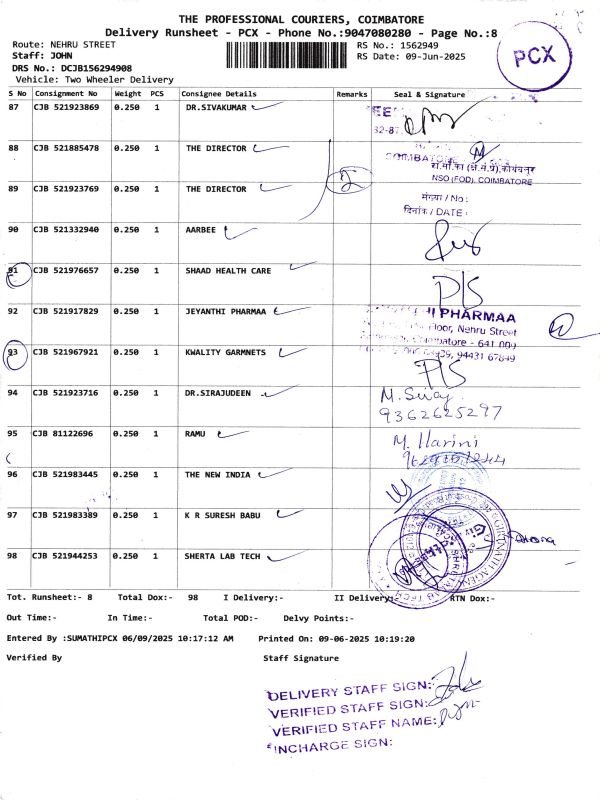 THE PROFESSIONAL COURIERS, COIMBATORE
Delivery Runsheet - PCX - Phone No.:9047080280 - Page No.:8
Route: NEHRU STREET
Staff: JOHN
DRS No.: DCJB156294908
Vehicle: Two Wheeler Delivery
RS No.: 1562949
RS Date: 09-Jun-2025
PCX
S No Consignment No Weight PCS Consignee Details Remarks Seal & Signature
87 CJB 521923869 0.250 1 DR.SIVAKUMAR
88 CJB 521885478 0.250 1 THE DIRECTOR
COIMBATORE
NSO (FOD), COIMBATORE
89 CJB 521923769 0.250 1 THE DIRECTOR 2
संख्या / No :
दिनांक / DATE :
90 CJB 521332940 0.250 1 AARBEE
91 CJB 521976657 0.250 1 SHAAD HEALTH CARE P/S
92 CJB 521917829 0.250 1 JEYANTHI PHARMAA
PHARMAA
Floor, Nehru Street
- 641 009
94431 67849
93 CJB 521967921 0.250 1 KWALITY GARMNETS P/S
94 CJB 521923716 0.250 1 DR.SIRAJUDEEN M. Siraj
9362625297
95 CJB 81122696 0.250 1 RAMU M. Harini
96 CJB 521983445 0.250 1 THE NEW INDIA
97 CJB 521983389 0.250 1 K R SURESH BABU
98 CJB 521944253 0.250 1 SHERTA LAB TECH
Tot. Runsheet:- 8 Total Dox:- 98 I Delivery:- II Delivery:- RTN Dox:-
Out Time:- In Time:- Total POD:- Delvy Points:-
Entered By :SUMATHIPCX 06/09/2025 10:17:12 AM Printed On: 09-06-2025 10:19:20
Verified By Staff Signature
DELIVERY STAFF SIGN:
VERIFIED STAFF SIGN:
VERIFIED STAFF NAME:
INCHARGE SIGN: